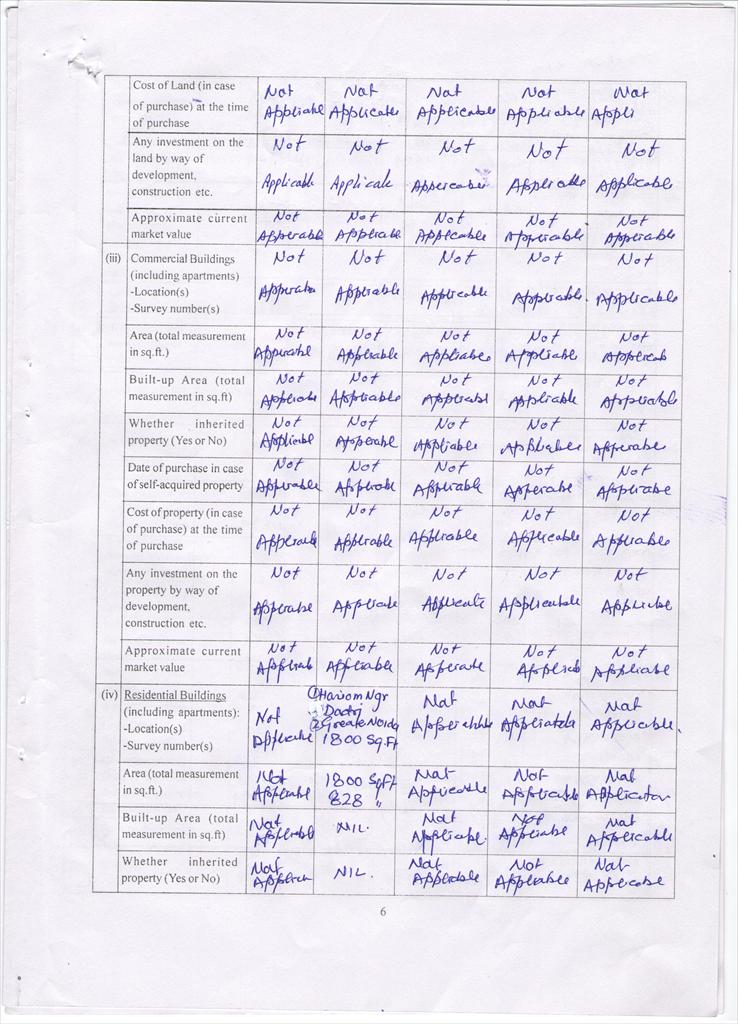 Cost of Land (in case of purchase) at the time of purchase | Not Applicable | Not Applicable | Not Applicable | Not Applicable | Not Appli
Any investment on the land by way of development, construction etc. | Not Applicable | Not Applicable | Not Applicable | Not Applicable | Not Applicable
Approximate current market value | Not Applicable | Not Applicable | Not Applicable | Not Applicable | Not Applicable
(iii) Commercial Buildings (including apartments) -Location(s) -Survey number(s) | Not Applicable | Not Applicable | Not Applicable | Not Applicable | Not Applicable
Area (total measurement in sq.ft.) | Not Applicable | Not Applicable | Not Applicable | Not Applicable | Not Applicable
Built-up Area (total measurement in sq.ft) | Not Applicable | Not Applicable | Not Applicable | Not Applicable | Not Applicable
Whether inherited property (Yes or No) | Not Applicable | Not Applicable | Not Applicable | Not Applicable | Not Applicable
Date of purchase in case of self-acquired property | Not Applicable | Not Applicable | Not Applicable | Not Applicable | Not Applicable
Cost of property (in case of purchase) at the time of purchase | Not Applicable | Not Applicable | Not Applicable | Not Applicable | Not Applicable
Any investment on the property by way of development, construction etc. | Not Applicable | Not Applicable | Not Applicable | Not Applicable | Not Applicable
Approximate current market value | Not Applicable | Not Applicable | Not Applicable | Not Applicable | Not Applicable
(iv) Residential Buildings (including apartments): -Location(s) -Survey number(s) | Not Applicable | (1) Hariom Ngr Dadri (2) Greate Noida 1800 Sq.Ft | Not Applicable | Not Applicable | Not Applicable.
Area (total measurement in sq.ft.) | Not Applicable | 1800 SqFt 828 " | Not Applicable | Not Applicable | Not Applicable
Built-up Area (total measurement in sq.ft) | Not Applicable | NIL. | Not Applicable. | Not Applicable | Not Applicable
Whether inherited property (Yes or No) | Not Applicable | NIL. | Not Applicable | Not Applicable | Not Applicable
6